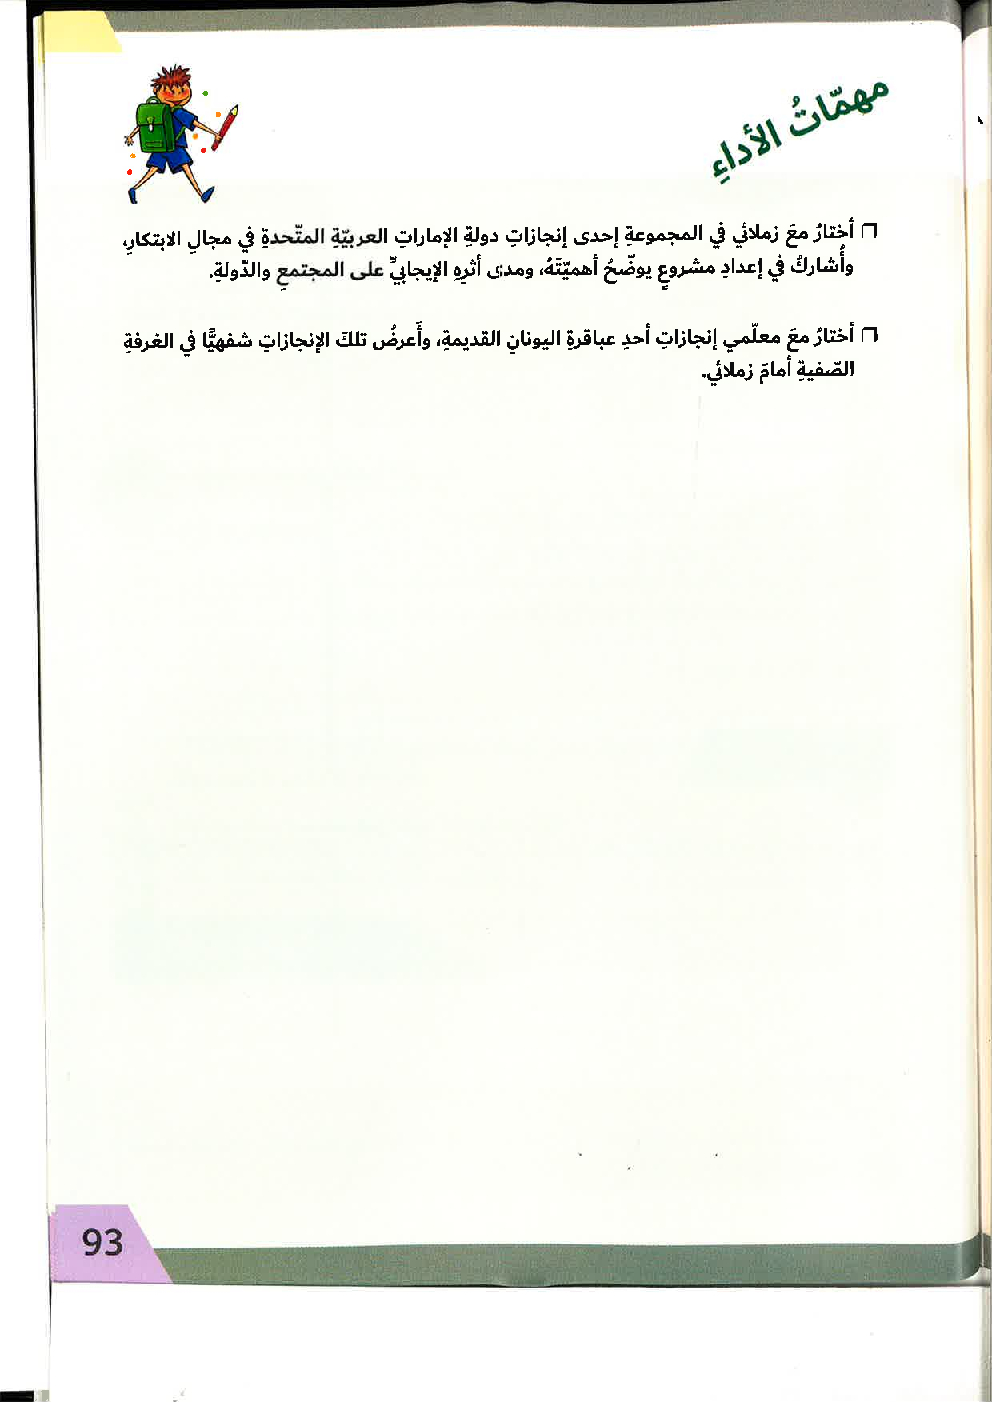 مهمّاتُ الأداءِ
❒ أختارُ معَ زملائي في المجموعةِ إحدى إنجازاتِ دولةِ الإماراتِ العربيّةِ المتّحدةِ في مجالِ الابتكارِ،
وأُشاركُ في إعدادِ مشروعٍ يوضّحُ أهميّتَهُ، ومدى أثرِهِ الإيجابيِّ على المجتمعِ والدّولةِ.
❒ أختارُ معَ معلّمي إنجازاتِ أحدِ عباقرةِ اليونانِ القديمةِ، وأَعرضُ تلكَ الإنجازاتِ شفهيًّا في الغرفةِ
الصّفيةِ أمامَ زملائي.
93